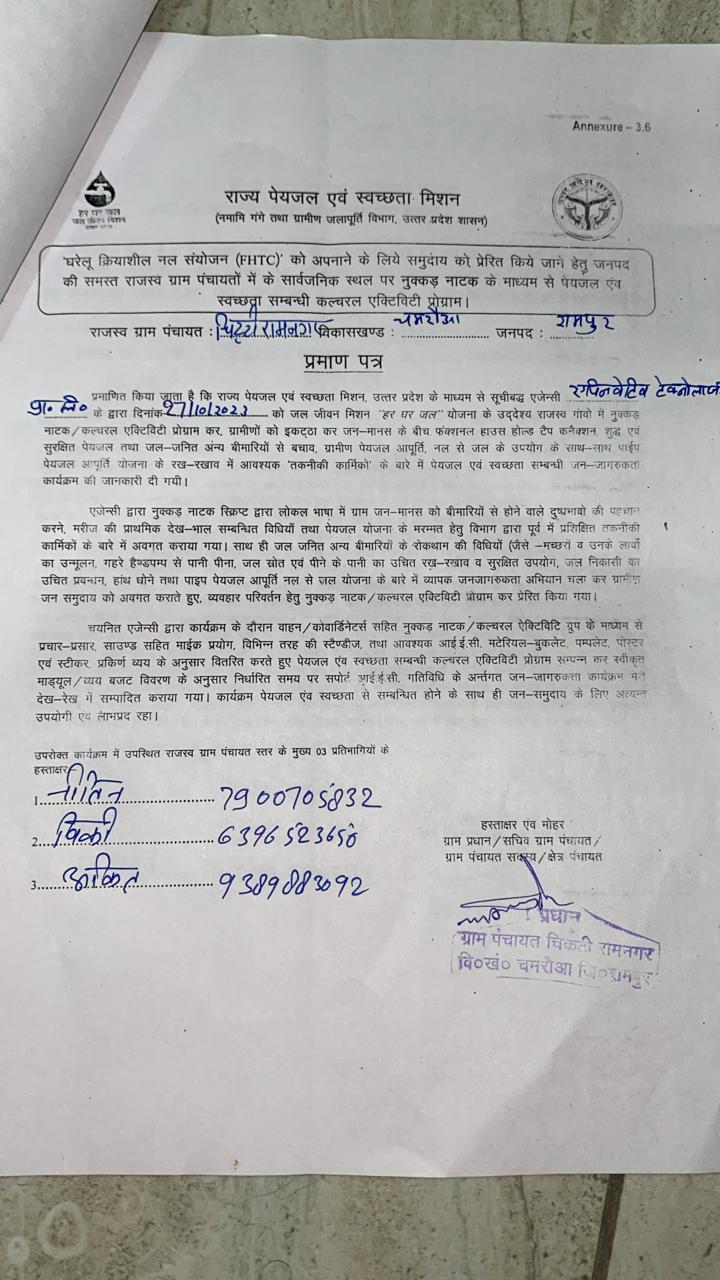 Annexure – 3.6
हर घर जल
जल जीवन मिशन
राज्य पेयजल एवं स्वच्छता मिशन
(नमामि गंगे तथा ग्रामीण जलापूर्ति विभाग, उत्तर प्रदेश शासन)
'घरेलू क्रियाशील नल संयोजन (FHTC)' को अपनाने के लिये समुदाय को प्रेरित किये जाने हेतु जनपद
की समस्त राजस्व ग्राम पंचायतों में के सार्वजनिक स्थल पर नुक्कड़ नाटक के माध्यम से पेयजल एंव
स्वच्छता सम्बन्धी कल्चरल एक्टिविटी प्रोग्राम।
राजस्व ग्राम पंचायत : रामनगर विकासखण्ड : चमरौआ जनपद : रामपुर
प्रमाण पत्र
प्रमाणित किया जाता है कि राज्य पेयजल एवं स्वच्छता मिशन, उत्तर प्रदेश के माध्यम से सूचीबद्ध एजेन्सी टेक्नोलाजी
प्रा. लि० के द्वारा दिनांक 27/10/2023 को जल जीवन मिशन "हर घर जल" योजना के उद्देश्य राजस्व गांवो में नुक्कड़
नाटक/कल्चरल एक्टिविटी प्रोग्राम कर, ग्रामीणों को इकट्ठा कर जन–मानस के बीच फंक्शनल हाउस होल्ड टैप कनैक्शन, शुद्ध एवं
सुरक्षित पेयजल तथा जल–जनित अंन्य बीमारियों से बचाव, ग्रामीण पेयजल आपूर्ति, नल से जल के उपयोग के साथ–साथ पाईप
पेयजल आपूर्ति योजना के रख–रखाव में आवश्यक 'तकनीकी कार्मिको' के बारे में पेयजल एवं स्वच्छता सम्बन्धी जन–जागरुकता
कार्यक्रम की जानकारी दी गयी।
एजेन्सी द्वारा नुक्कड़ नाटक स्क्रिप्ट द्वारा लोकल भाषा में ग्राम जन–मानस को बीमारियों से होने वाले दुष्प्रभावो की पहचान
करने, मरीज की प्राथमिक देख–भाल सम्बन्धित विधियाँ तथा पेयजल योजना के मरम्मत हेतु विभाग द्वारा पूर्व में प्रशिक्षित तकनीकी
कार्मिकों के बारे में अवगत कराया गया। साथ ही जल जनित अन्य बीमारियों के रोकथाम की विधियों (जैसे –मच्छरों व उनके लार्वा
का उन्मूलन, गहरे हैण्डपम्प से पानी पीना, जल स्रोत एवं पीने के पानी का उचित रख–रखाव व सुरक्षित उपयोग, जल निकासी का
उचित प्रबन्धन, हांथ धोने तथा पाइप पेयजल आपूर्ति नल से जल योजना के बारे में व्यापक जनजागरुकता अभियान चला कर ग्रामीण
जन समुदाय को अवगत कराते हुए, व्यवहार परिवर्तन हेतु नुक्कड़ नाटक/कल्चरल एक्टिविटी प्रोग्राम कर प्रेरित किया गया।
चयनित एजेन्सी द्वारा कार्यक्रम के दौरान वाहन/कोवार्डिनेटर्स सहित नुक्कड़ नाटक/कल्चरल ऐक्टिविटि ग्रुप के माध्यम से
प्रचार–प्रसार, साउण्ड सहित माईक प्रयोग, विभिन्न तरह की स्टैण्डीज, तथा आवश्यक आई.ई.सी. मटेरियल–बुकलेट, पम्पलेट, पोस्टर
एवं स्टीकर, प्रकिर्ण व्यय के अनुसार वितरित करते हुए पेयजल एंव स्वच्छता सम्बन्धी कल्चरल एक्टिविटी प्रोग्राम सम्पन्न कर स्वीकृत
माड्यूल/व्यय बजट विवरण के अनुसार निर्धारित समय पर सपोर्ट आई.ई.सी. गतिविधि के अर्न्तगत जन–जागरुकता कार्यक्रम मेरे
देख–रेख में सम्पादित कराया गया। कार्यक्रम पेयजल एवं स्वच्छता से सम्बन्धित होने के साथ ही जन–समुदाय के लिए अत्यन्त
उपयोगी एवं लाभप्रद रहा।
उपरोक्त कार्यक्रम में उपस्थित राजस्व ग्राम पंचायत स्तर के मुख्य 03 प्रतिभागियों के
हस्ताक्षर
1. नीतिन 7900705832
2. विक्की 6396523650
3. अंकित 9389883092
हस्ताक्षर एंव मोहर
ग्राम प्रधान/सचिव ग्राम पंचायत/
ग्राम पंचायत सदस्य/क्षेत्र पंचायत
प्रधान
ग्राम पंचायत चिकटी रामनगर
वि०खं० चमरौआ जि०रामपुर